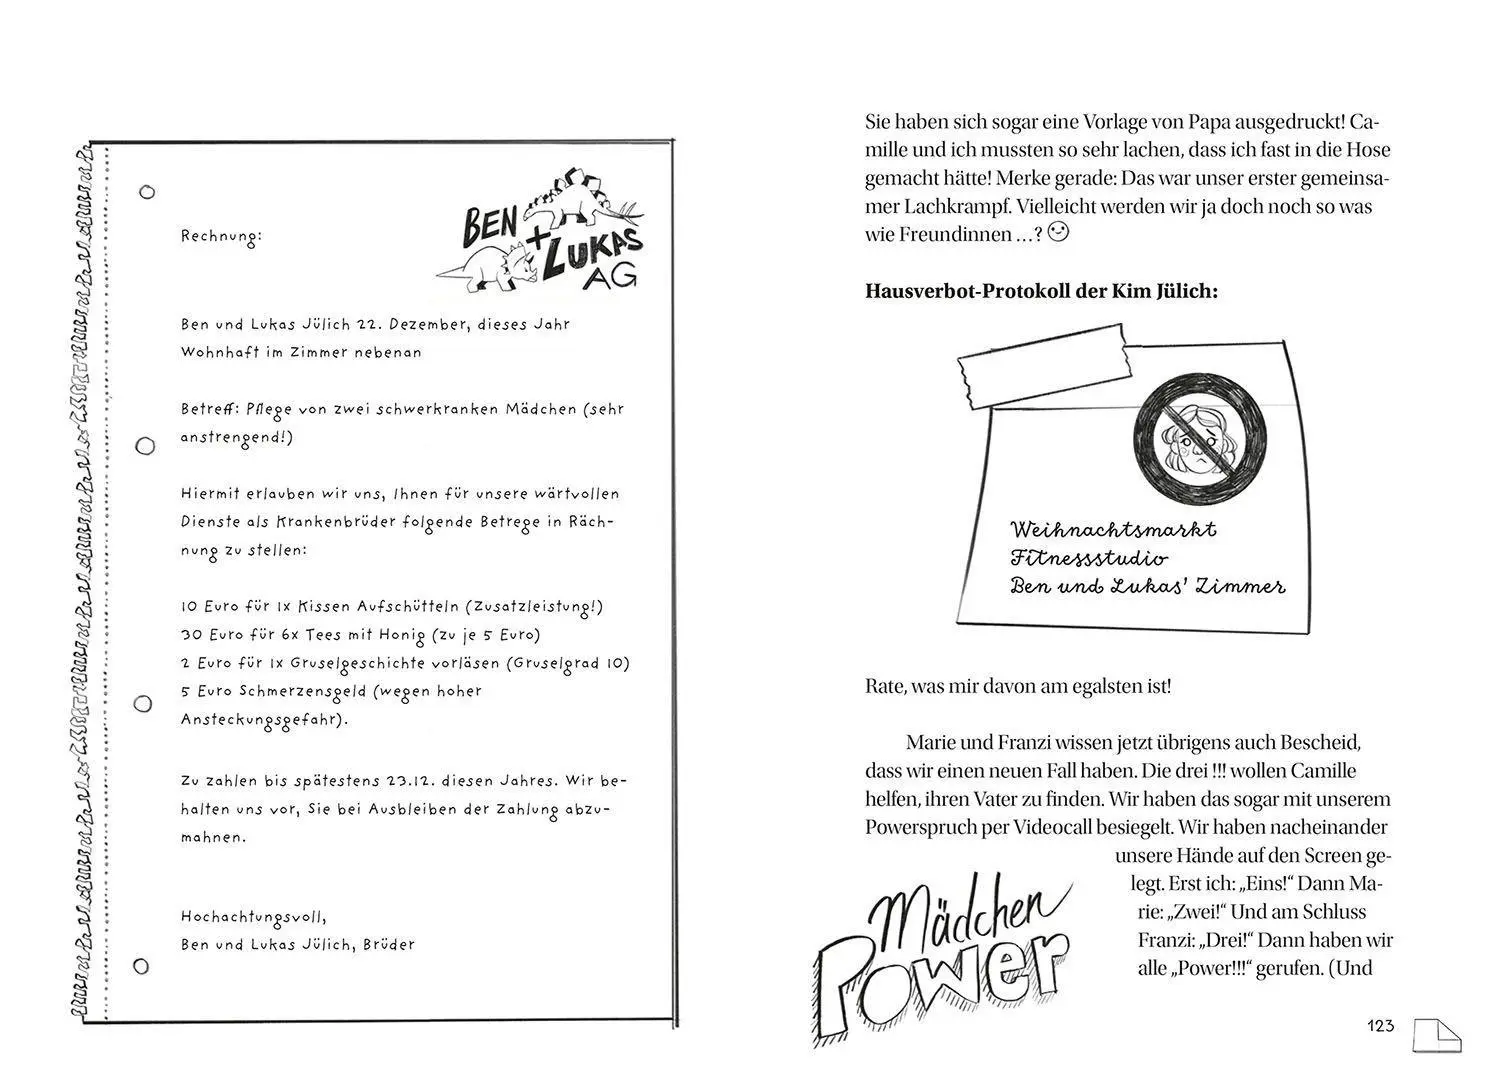 Rechnung:
BEN
+
LUKAS
AG
Ben und Lukas Jülich 22. Dezember, dieses Jahr
Wohnhaft im Zimmer nebenan
Betreff: Pflege von zwei schwerkranken Mädchen (sehr
anstrengend!)
Hiermit erlauben wir uns, Ihnen für unsere wärtvollen
Dienste als Krankenbrüder folgende Betrege in Räch-
nung zu stellen:
10 Euro für 1x Kissen Aufschütteln (Zusatzleistung!)
30 Euro für 6x Tees mit Honig (zu je 5 Euro)
2 Euro für 1x Gruselgeschichte vorläsen (Gruselgrad 10)
5 Euro Schmerzensgeld (wegen hoher
Ansteckungsgefahr).
Zu zahlen bis spätestens 23.12. diesen Jahres. Wir be-
halten uns vor, Sie bei Ausbleiben der Zahlung abzu-
mahnen.
Hochachtungsvoll,
Ben und Lukas Jülich, Brüder
Sie haben sich sogar eine Vorlage von Papa ausgedruckt! Ca-
mille und ich mussten so sehr lachen, dass ich fast in die Hose
gemacht hätte! Merke gerade: Das war unser erster gemeinsa-
mer Lachkrampf. Vielleicht werden wir ja doch noch so was
wie Freundinnen …?
Hausverbot-Protokoll der Kim Jülich:
Weihnachtsmarkt
Fitnessstudio
Ben und Lukas' Zimmer
Rate, was mir davon am egalsten ist!
Marie und Franzi wissen jetzt übrigens auch Bescheid,
dass wir einen neuen Fall haben. Die drei !!! wollen Camille
helfen, ihren Vater zu finden. Wir haben das sogar mit unserem
Powerspruch per Videocall besiegelt. Wir haben nacheinander
unsere Hände auf den Screen ge-
legt. Erst ich: „Eins!“ Dann Ma-
rie: „Zwei!“ Und am Schluss
Franzi: „Drei!“ Dann haben wir
alle „Power!!!“ gerufen. (Und
Mädchen
Power
123